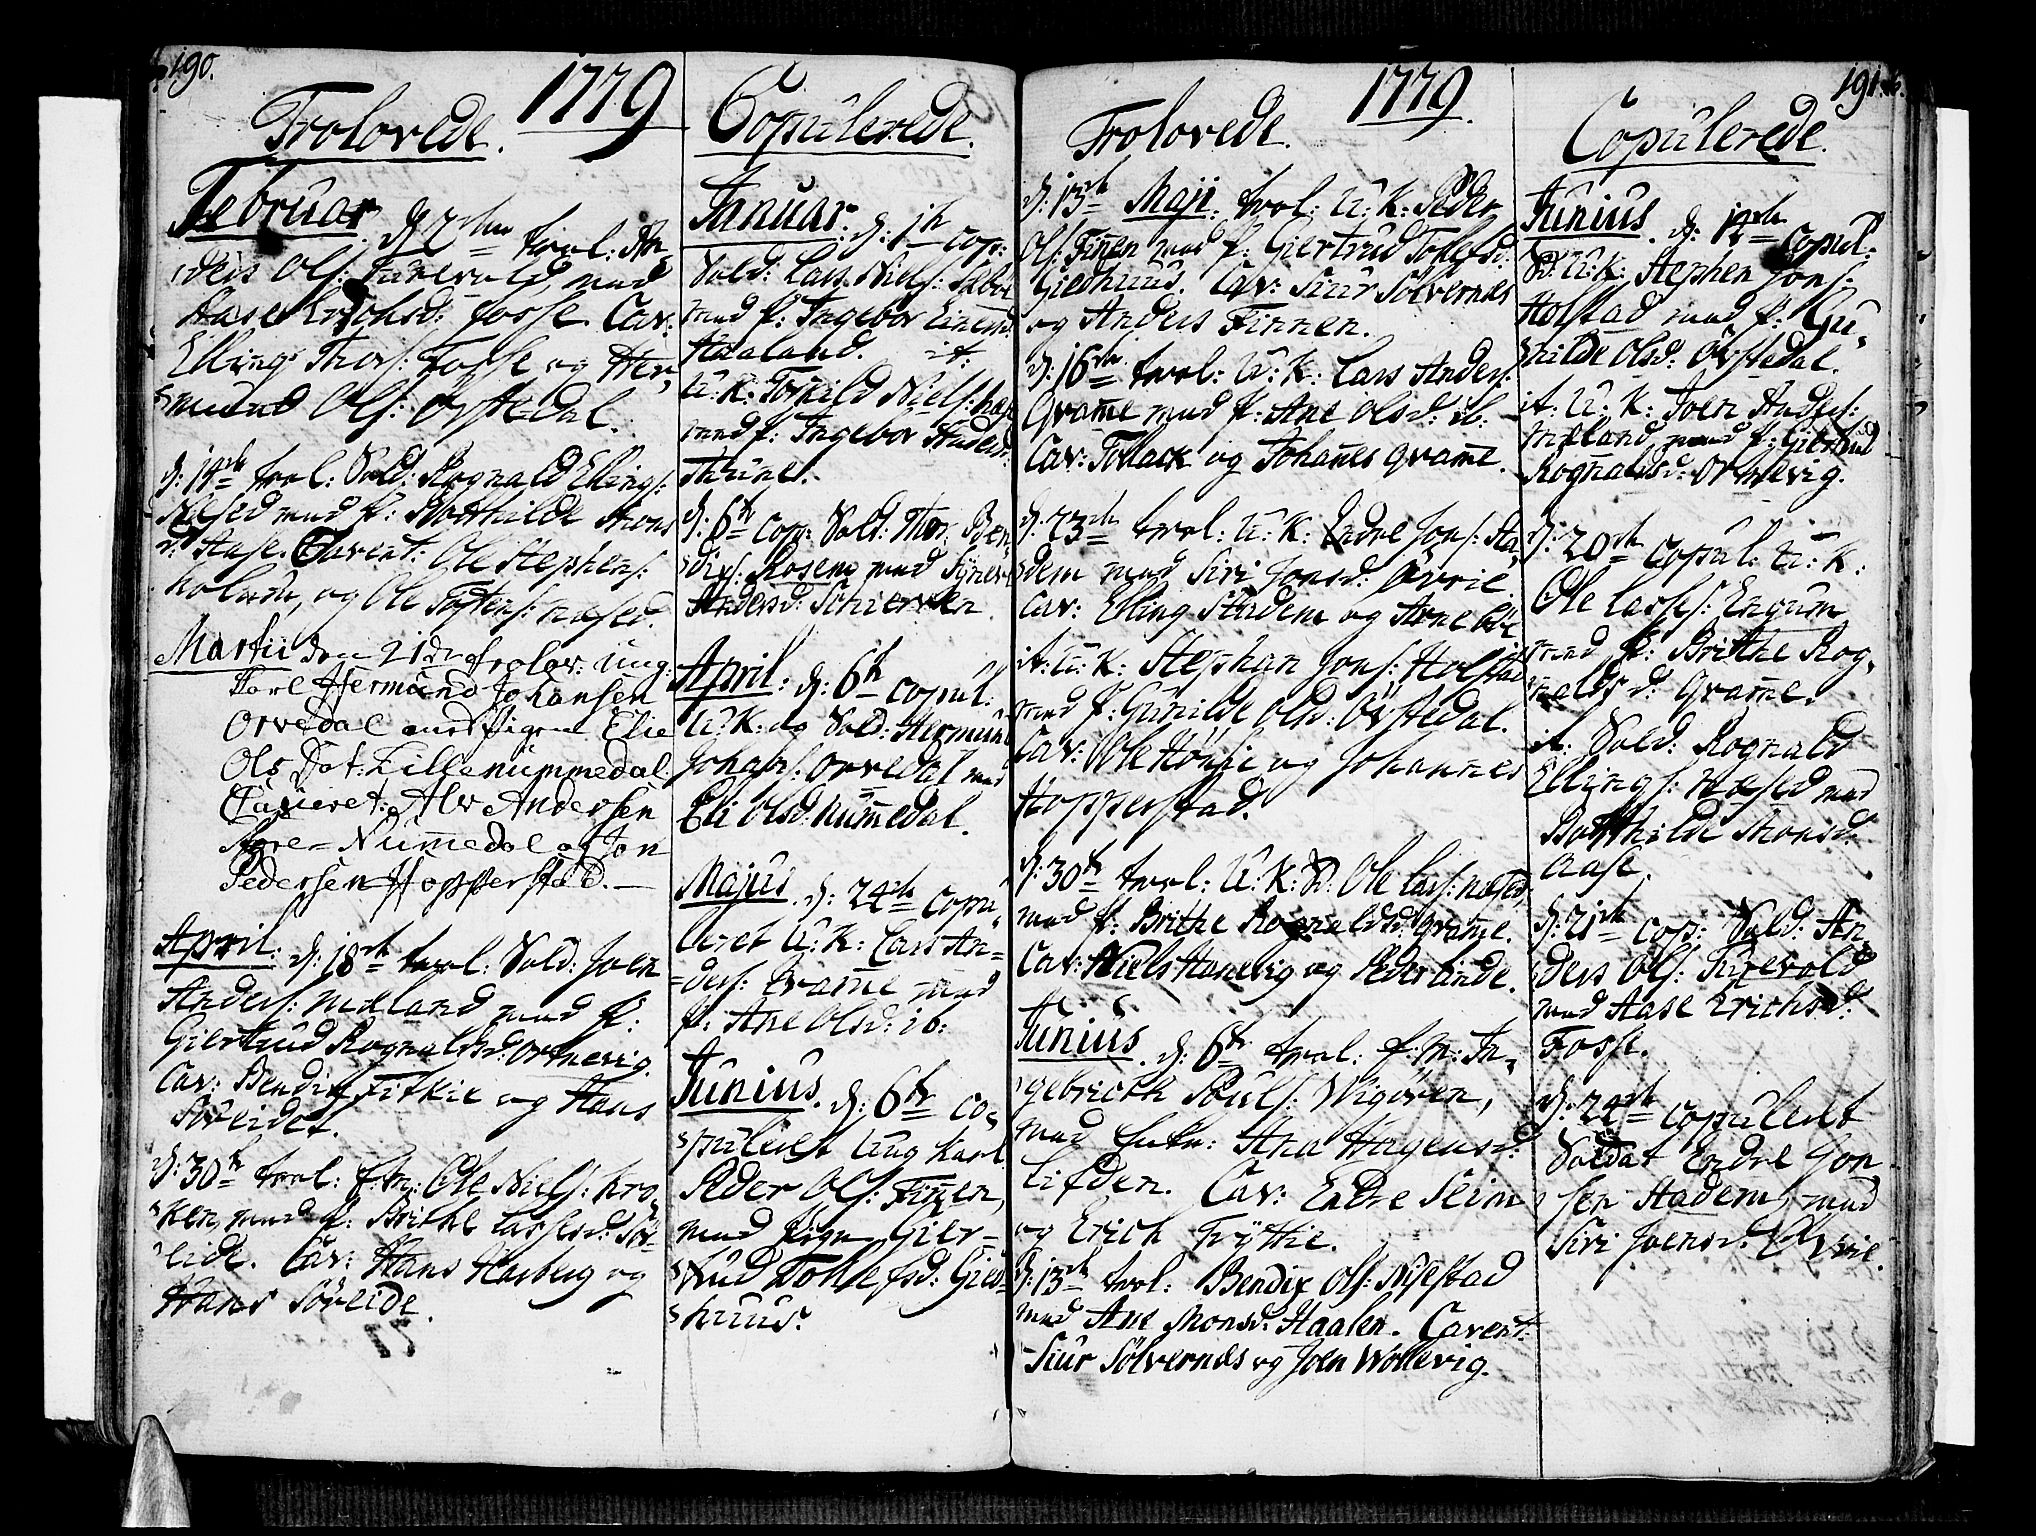 190.
1779
Trolovede.
Februar. d: 2den trol: An-
ders Ols: Turevold med
Aase Erichsd: Fosse. Cav:
Elling Thors: Fosse og Her-
mund Ols: Øvstedal.
d: 14de trol: Sold: Rognald Ellings:
Næsed med P: Botthilde Mons
d: Aase. Cavent: Ole Stephens:
Holum, og Ole Tostens: Næsed.
Martii den 21de trolov: ung:
Karl Hermund Johansen
Orvedal med Pigen Elie
Ols Dat: Lille Nummedal.
Caveret: Alv Andersen
Nummedal og Jon
Pedersen Hopperstad.
April. d: 18de trol: Sold: Joen
Anders: Mæland med P:
Giertrud Rognaldsd: Ortnevig.
Cav: Bendix Fitkie og Hans
Søreidet.
d: 30te trol: E: M: Ole Niels: Kro-
ken, med P: Brithe Lassesd: Sør-
eide. Cav: Hans Hasberg og
Hans Søreide.
Copulerede.
Januar. d: 1te cop:
Sold: Lars Niels: Sæbøe
med P: Ingebor Einersd:
Haaland. it:
U: K: Torkild Niels:
med P: Ingebor Andersd:
Thune.
d: 6te cop: Sold: Thor Ben-
dix: Rosem med Synneve
Andersd: Schiersen.
April: d: 6te copul:
U: K: og Sold: Hermund
Johans: Orvedal med
Eli Olsd: Nummedal.
Majus. d: 24de Copu-
leret U: K: Lars An-
ders: Gramme med
P: Ane Olsd: ib:
Junius. d: 6te co-
puleret Ung Karl
Peder Ols: Finnen,
med Pigen Gier-
trud Tollefsd: Gies-
huus.
1779.
191.
Trolovede.
d: 13de Maji: trol: U: K: Peder
Ols: Finnen med P: Giertrud Tollefsd:
Giedhuus. Cav: Siur Sølvernæs
og Anders Finnen.
d: 16de trol: U: K: Lars Anders:
Gramme med P: Ane Olsd: ib:
Cav: Tollack og Johannes Gramme.
d: 23de trol: U: K: Endre Jons: Sta-
dem med Siri Jonsd: Øvrie.
Cav: Elling Stadem og Arne
it: U: K: Stephan Jons: Holstad
med P: Gunilde Olsd: Øvstedal.
Cav: Ole Hønsi og Johannes
Hopperstad.
d: 30te trol: U: K: Sd: Ole Lass: Næsed,
med P: Brithe Rognaldsd: Gramme.
Cav: Niels Hanevig og Peder Linde.
Junius. d: 6te trol: E: M: In-
gebricth Pouls: Wigøren,
med Enke: Ana Hagensd:
Lifden. Cav: Endre Seim
og Erich Tryttie.
d: 13de trol: Bendix Ols: Nysstad
med Ane Monsd: Haalen. Cavent:
Siur Sølvernæs og Joen Wollevig.
Copulerede.
Junius. d: 12de copul:
Sd: U: K: Stephen Jons:
Holstad med P: Gu-
nilde Olsd: Øvstedal.
it: U: K: Joen Anders:
Mæland med P: Giertrud
Rognaldsd: Ortnevig.
d: 20de copul: U: K:
Ole Lasses: Engum
med P: Brithe Rog-
naldsd: Gramme.
it: Sold: Rognald
Ellings: Næsed med
Botthilde Monsd:
Aase.
d: 21de cop: Sold: An-
ders Ols: Turevold
med Aase Erichsd:
Fosse.
d: 24de copuleret
Soldat Endre Jon-
sen Stadem, med
Siri Joensd: Øvrie.